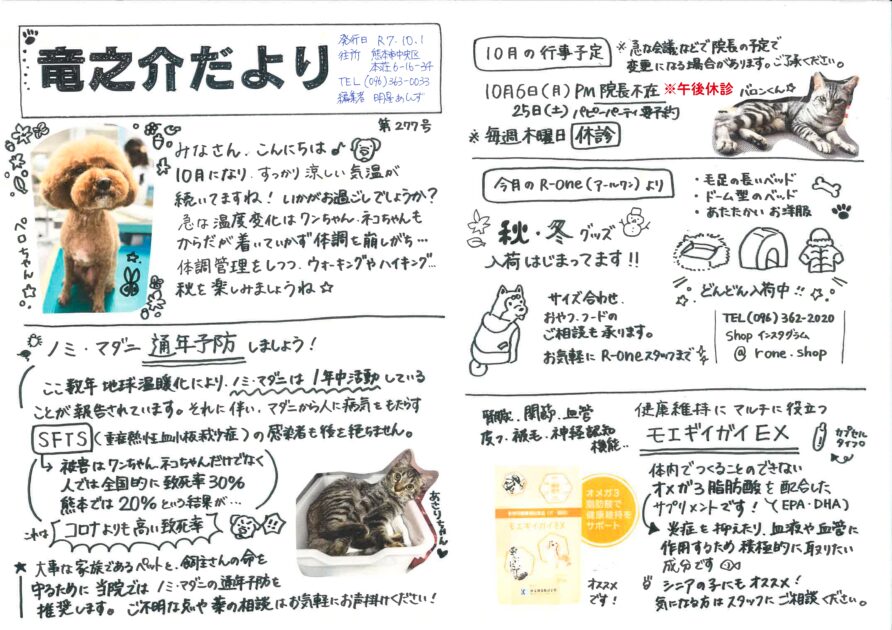 竜之介だより
発行日 R7.10.1
住所 熊本市中央区
本荘6-16-34
TEL (096)363-0033
編集者 明星あしず
第277号
みなさん、こんにちは♪
10月になり、すっかり涼しい気温が
続いてますね！いかがお過ごしでしょうか？
急な温度変化はワンちゃん、ネコちゃんも
からだが着いていかず体調を崩しがち…
体調管理をしつつ、ウォーキングやハイキング…
秋を楽しみましょうね☆
ペロちゃん☆
ノミ・マダニ 通年予防 しましょう！
ここ数年 地球温暖化により、ノミ・マダニは1年中活動している
ことが報告されています。それに伴い、マダニから人に病気をもたらす
SFTS(重症熱性血小板減少症)の感染者も後を絶ちません。
被害はワンちゃん、ネコちゃんだけでなく
人では全国的に致死率30%
熊本では20%という結果が…
これは コロナよりも高い致死率
あさりちゃん
★ 大事な家族であるペットと、飼主さんの命を
守るために当院ではノミ・マダニの通年予防を
推奨します。ご不明な点や薬の相談はお気軽にお声掛けください！
10月の行事予定
※急な会議などで院長の予定で
変更になる場合があります。ご了承ください。
10月6日(月) PM 院長不在 ※午後休診
25日(土) パピーパーティ 要予約
※ 毎週木曜日 休診
バロンくん☆
今月のR-one(アールワン)より
・毛足の長いベッド
・ドーム型のベッド
・あたたかいお洋服
秋・冬グッズ
入荷はじまってます!!
どんどん入荷中!!
サイズ合わせ、
おやつ、フードの
ご相談も承ります。
お気軽にR-oneスタッフまで
TEL (096)362-2020
Shop インスタグラム
@ rone.shop
腎臓、関節、血管
皮フ、被毛、神経認知
機能…
健康維持にマルチに役立つ
モエギイガイEX
カプセルタイプ◎
体内でつくることのできない
オメガ3脂肪酸を配合した
サプリメントです！(EPA・DHA)
炎症を抑えたり、血液や血管に
作用するため積極的に取りたい
成分です
シニアの子にもオススメ！
気になる方はスタッフにご相談ください。
オメガ3
脂肪酸で
健康維持を
サポート
モエギイガイEX
オススメ
です！